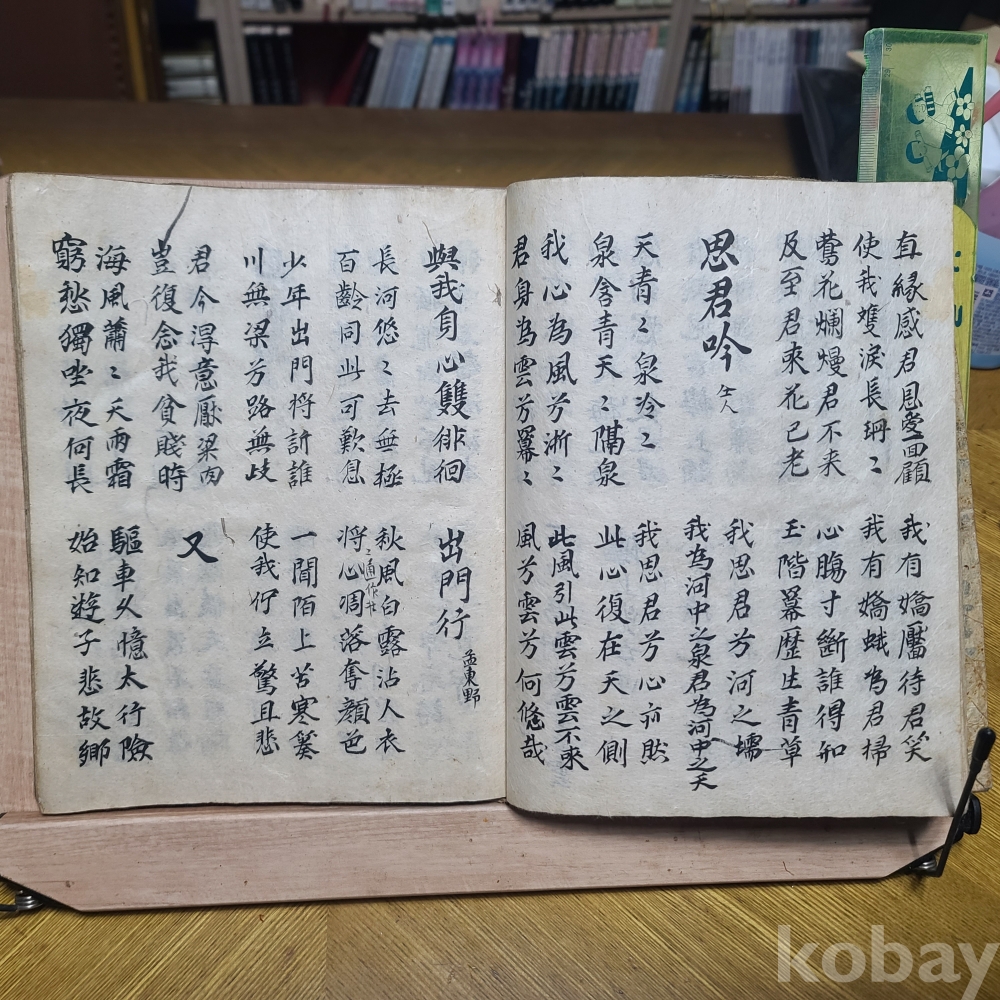 直緣感君恩愛一回顧
使我雙淚長珊〻
我有嬌靨待君笑
我有嬌蛾為君掃
鶯花爛熳君不来
及至君來花已老
心膓寸斷誰得知
玉階冪歷生青草
思君吟
我思君兮河之壖
我為河中之泉君為河中之天
天青〻泉冷〻
泉含青天〻隔泉
我思君兮心亦然
此心復在天之側
我心為風兮淅〻
君身為雲兮冪〻
此風引此雲兮雲不來
風兮雲兮何悠哉
與我身心雙徘徊
出門行
孟東野
長河悠〻去無極
百齡同此可歎息
秋風白露沾人衣
將心凋落奪顏色
少年出門將訴誰
川無梁兮路無歧
一聞陌上苦寒奏
使我佇立驚且悲
君今得意厭梁肉
豈復念我貧賤時
又
海風蕭〻天雨霜
窮愁獨坐夜何長
驅車久憶太行險
始知遊子悲故鄉
kobay